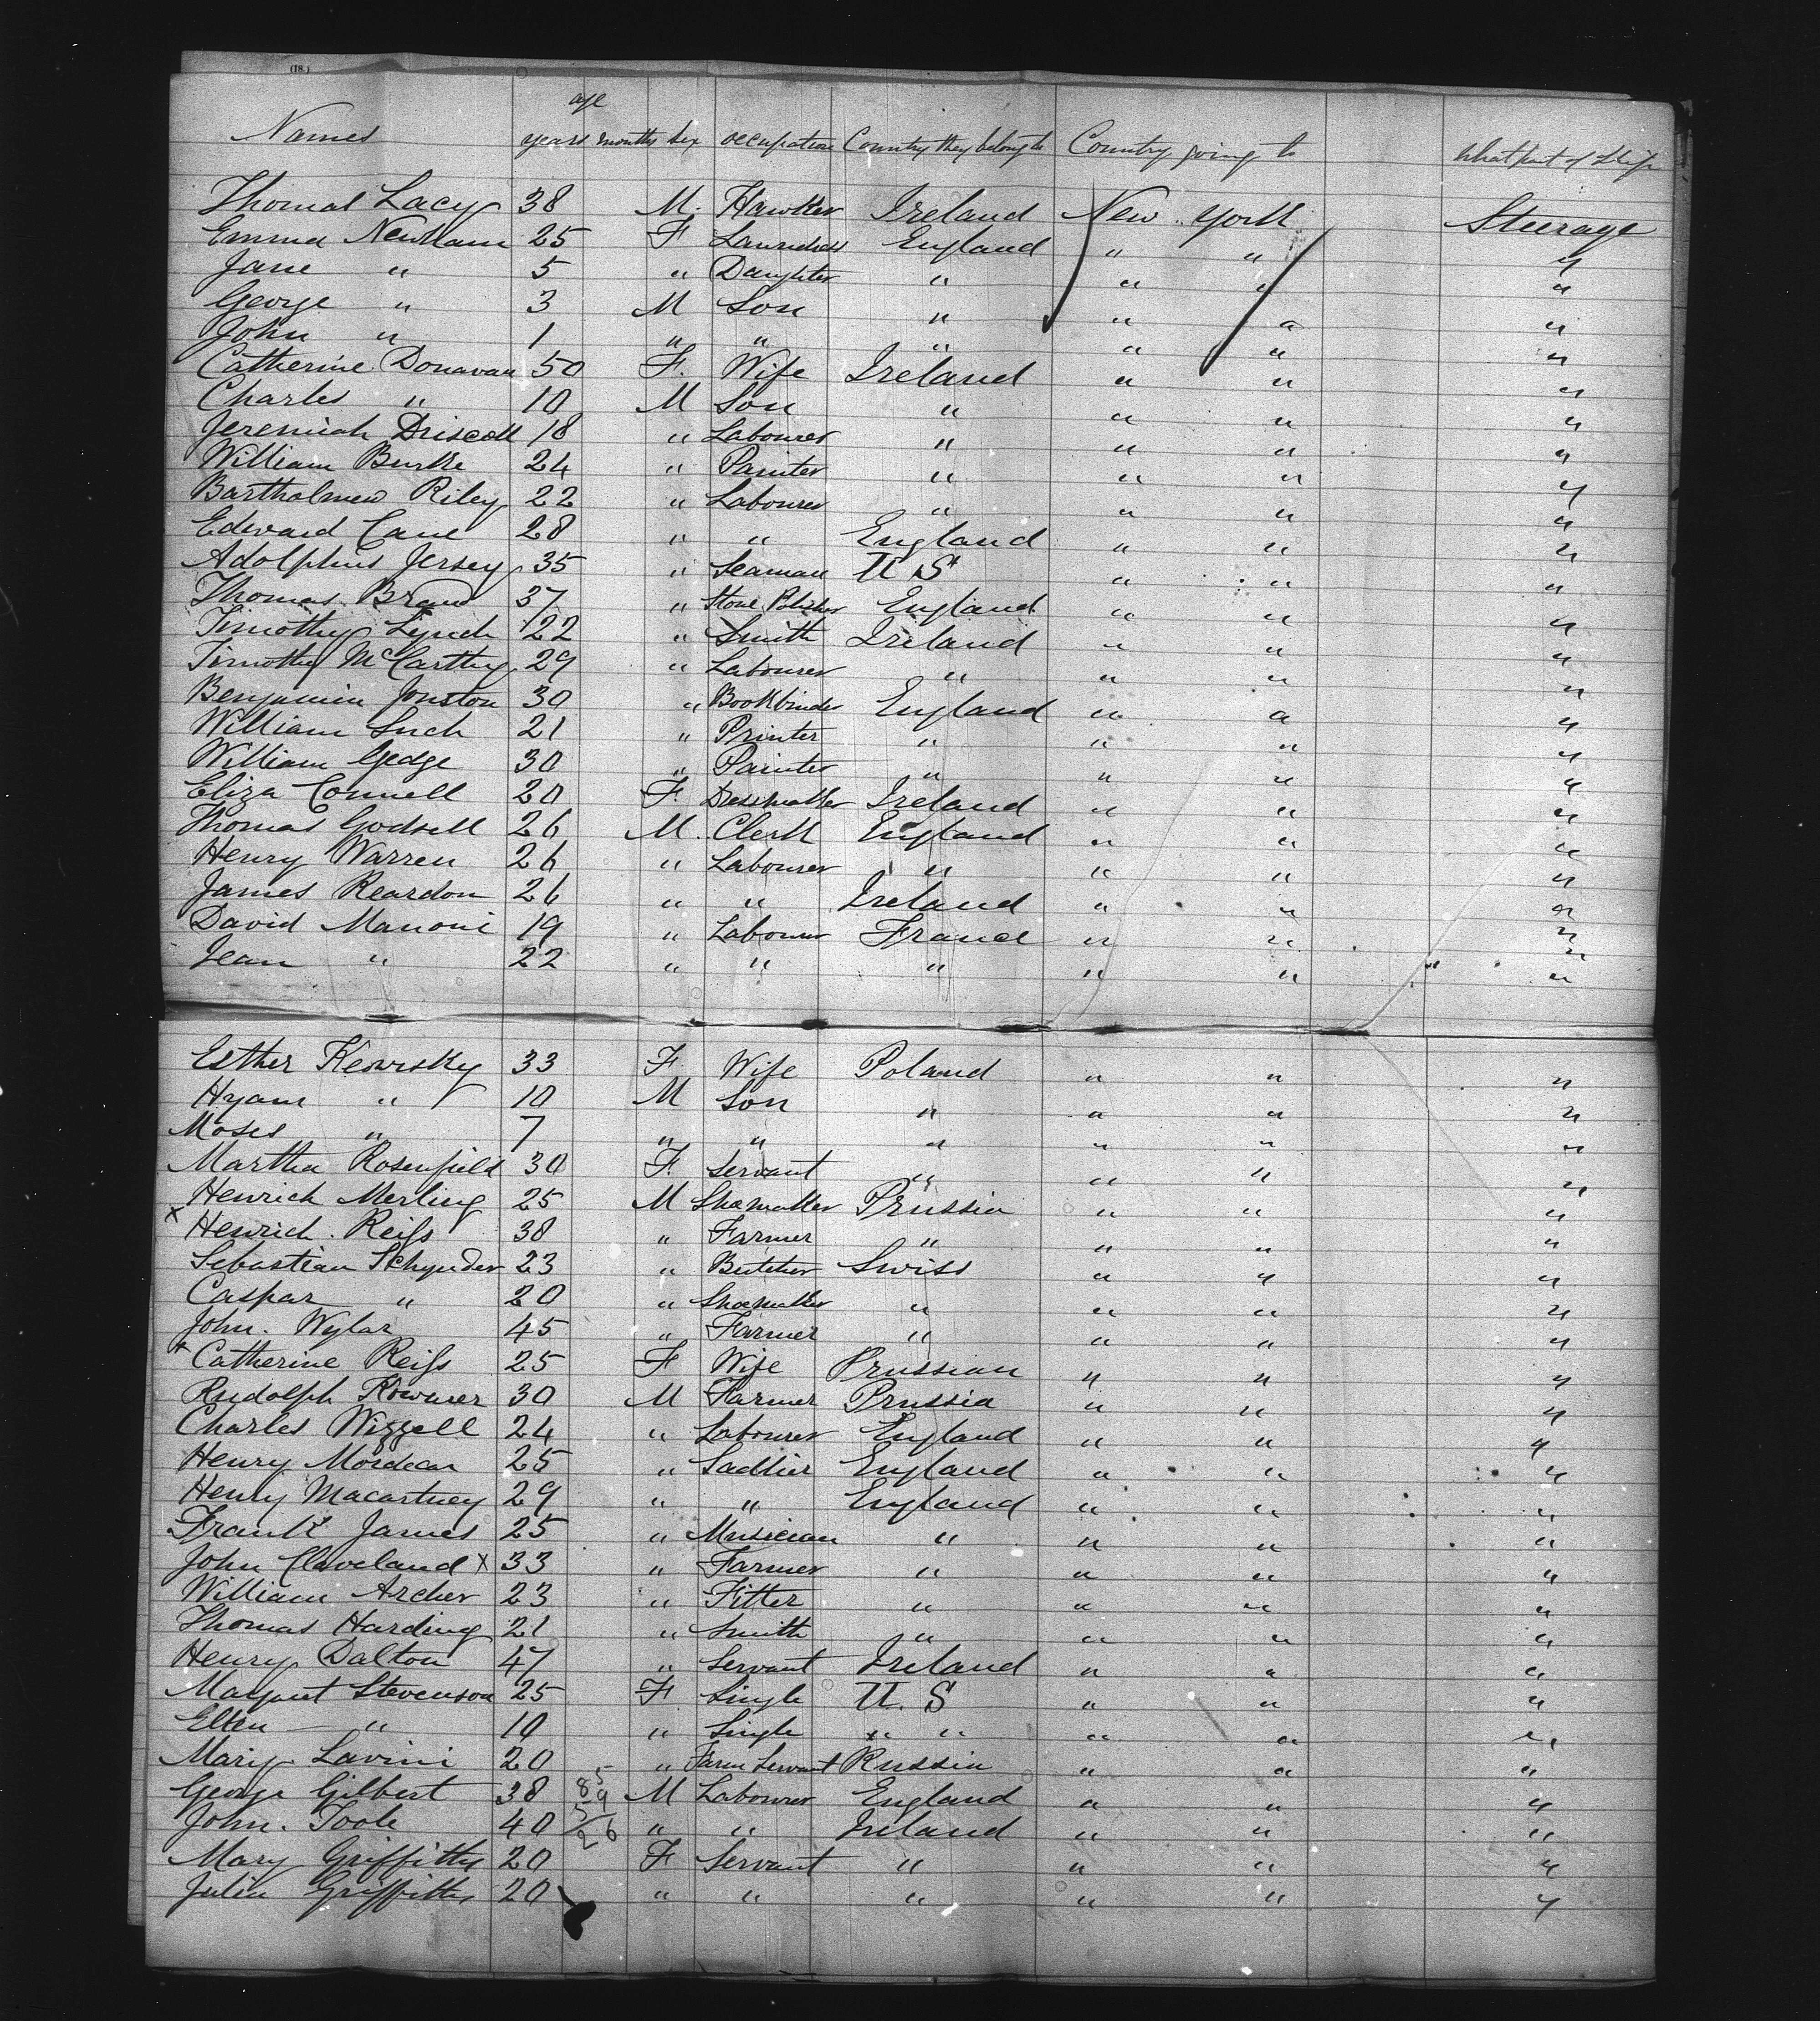 (18.)
age
Names years months sex occupation Country they belong to Country going to What part of Ship
Thomas Lacy 38 M. Hawker Ireland New York Steerage
Emma Newham 25 F Laundress England " " "
Jane " 5 " Daughter " " " "
George " 3 M Son " " " "
John " 1 " " " " " "
Catherine Donavan 50 F. Wife Ireland " " "
Charles " 10 M Son " " " "
Jeremiah Driscoll 18 " Labourer " " " "
William Burke 24 " Painter " " " "
Bartholmew Riley 22 " Labourer " " " "
Edward Cane 28 " " England " " "
Adolphus Jersey 35 " Seaman U S " " "
Thomas 37 " Stone Polisher England " " "
Timothy Lynch 22 " Smith Ireland " " "
Timothy McCarthy 29 " Labourer " " " "
Benjamin Jonston 30 " Bookbinder England " " "
William Such 21 " Printer " " " "
William Gedge 30 " Painter " " " "
Eliza Connell 20 F. Dressmaker Ireland " " "
Thomas Godsell 26 M. Clerk England " " "
Henry Warren 26 " Labourer " " " "
James Reardon 26 " " Ireland " " "
David Manoni 19 " Labourer France " " "
Jean " 22 " " " " " "
Esther Kewisky 33 F Wife Poland " " "
Hyam " 10 M Son " " " "
Moses " 7 " " " " " "
Martha Rosenfield 30 F. Servant " " " "
Henrich Merling 25 M Shoemaker Prussia " " "
x Henrich. Reiss 38 " Farmer " " " "
Sebastian Schynder 23 " Butcher Swiss " " "
Caspar " 20 " Shoemaker " " " "
John. Wylar 45 " Farmer " " " "
x Catherine Reiss 25 F Wife Prussian " " "
Rudolph 30 M Farmer Prussia " " "
Charles Wizzell 24 " Labourer England " " "
Henry Mordecai 25 " Sadlier England " " "
Henry Macartney 29 " " England " " "
Frank James 25 " Musician " " " "
John Cleveland x 33 " Farmer " " " "
William Archer 23 " Fitter " " " "
Thomas Harding 21 " Smith " " " "
Henry Dalton 47 " Servant Ireland " " "
Margaret Stevenson 25 F Single U. S " " "
Ellen " 10 " Single " " " " "
Mary Lavini 20 " Farm Servant Russia " " "
George Gilbert 38 M Labourer England " " "
John. Toole 40 " " Ireland " " "
Mary Griffiths 20 F Servant " " " "
Julia Griffiths 20 " " " " " "